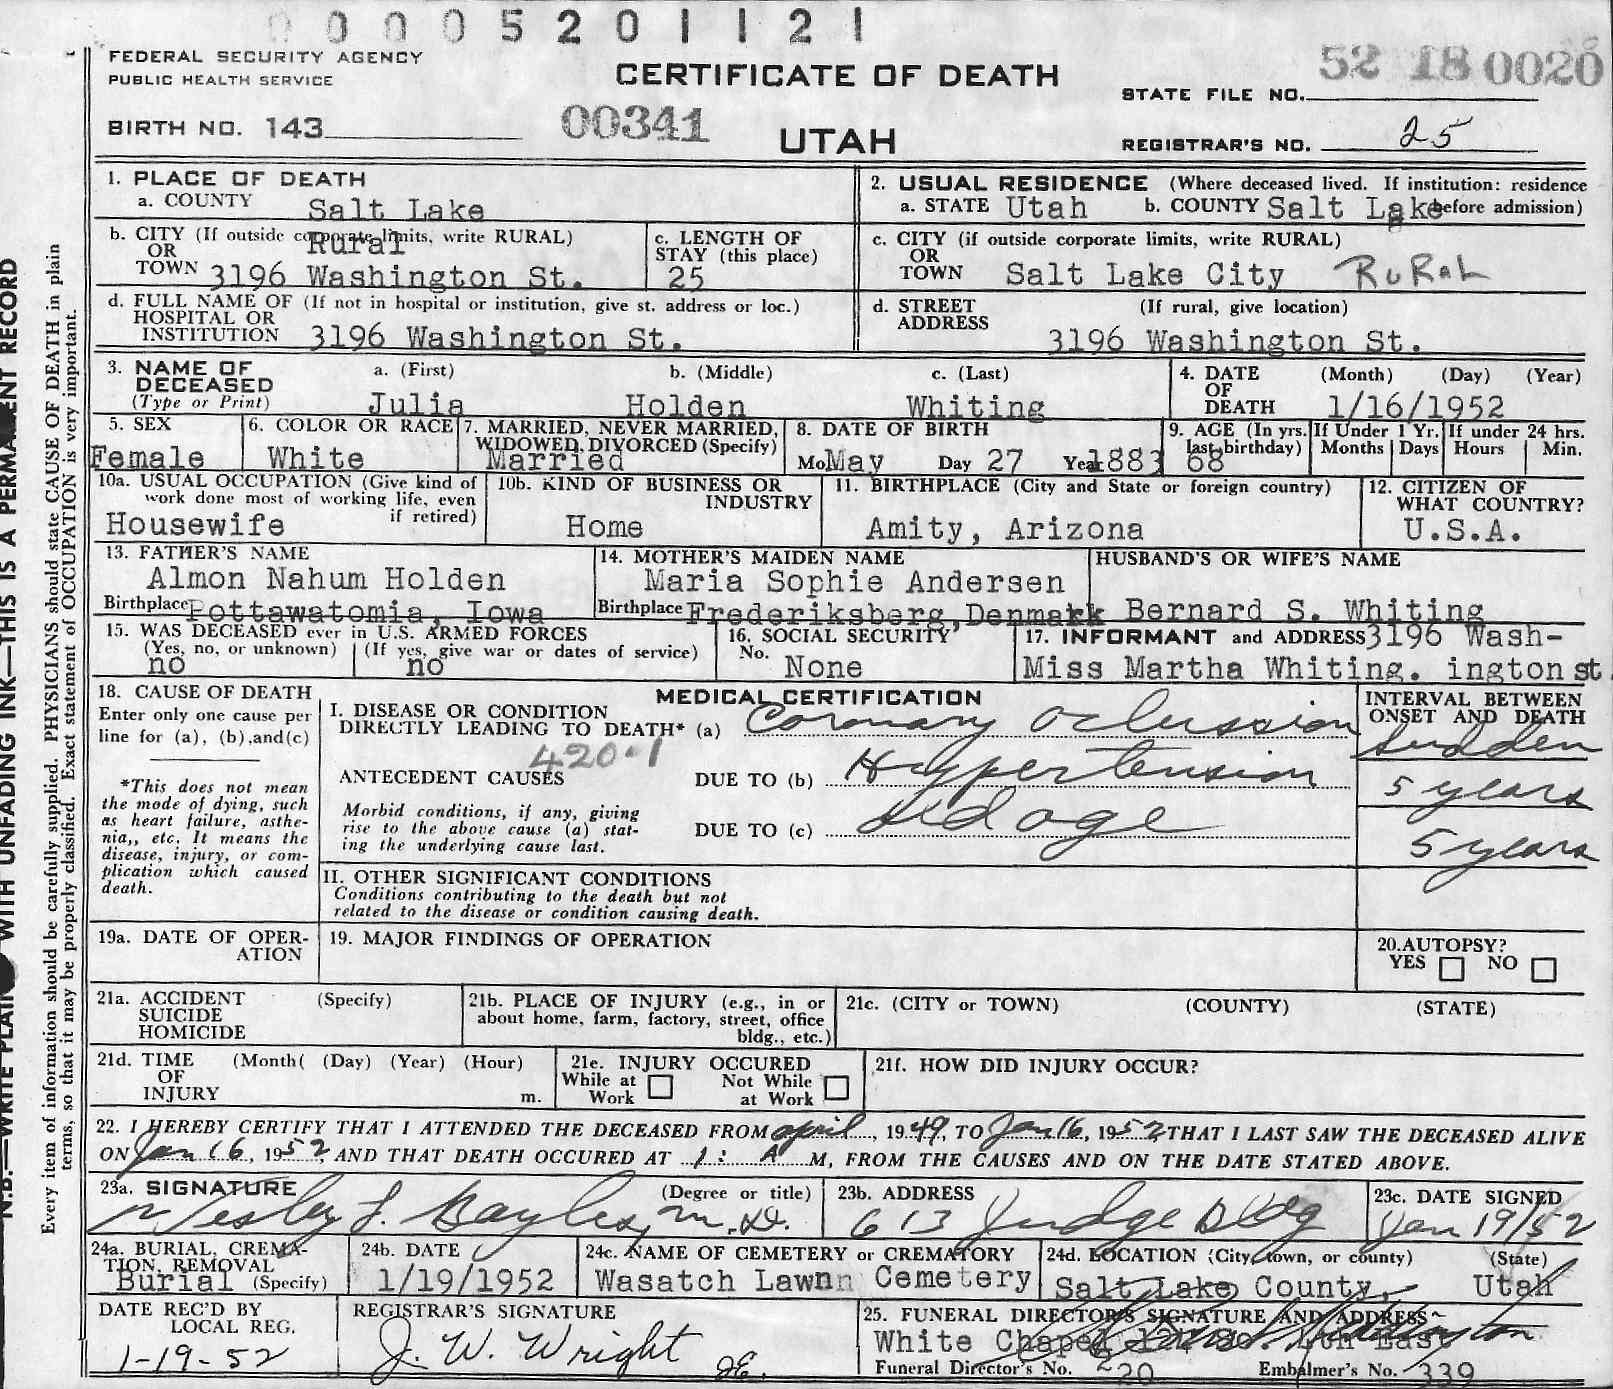 0 0 0 0 5 2 0 1 1 2 1
FEDERAL SECURITY AGENCY
PUBLIC HEALTH SERVICE
CERTIFICATE OF DEATH
52 18 0020
STATE FILE NO.
BIRTH NO. 143
00341
UTAH
REGISTRAR'S NO. 25
N.B.—WRITE PLAIN WITH UNFADING INK—THIS IS A PERMANENT RECORD
Every item of information should be carefully supplied. PHYSICIANS should state CAUSE OF DEATH in plain
terms, so that it may be properly classified. Exact statement of OCCUPATION is very important.
1. PLACE OF DEATH
a. COUNTY Salt Lake
2. USUAL RESIDENCE (Where deceased lived. If institution: residence
a. STATE Utah b. COUNTY Salt Lake before admission)
b. CITY (If outside corporate limits, write RURAL)
Rural
OR
TOWN 3196 Washington St.
c. LENGTH OF
STAY (this place)
25
c. CITY (if outside corporate limits, write RURAL)
OR
TOWN Salt Lake City RURAL
d. FULL NAME OF (If not in hospital or institution, give st. address or loc.)
HOSPITAL OR
INSTITUTION 3196 Washington St.
d. STREET (If rural, give location)
ADDRESS
3196 Washington St.
3. NAME OF a. (First) b. (Middle) c. (Last)
DECEASED
(Type or Print) Julia Holden Whiting
4. DATE (Month) (Day) (Year)
OF
DEATH 1/16/1952
5. SEX
Female
6. COLOR OR RACE
White
7. MARRIED, NEVER MARRIED,
WIDOWED, DIVORCED (Specify)
Married
8. DATE OF BIRTH
Mo. May Day 27 Year 1883
9. AGE (In yrs.
last birthday)
68
If Under 1 Yr.
Months Days
If under 24 hrs.
Hours Min.
10a. USUAL OCCUPATION (Give kind of
work done most of working life, even
if retired)
Housewife
10b. KIND OF BUSINESS OR
INDUSTRY
Home
11. BIRTHPLACE (City and State or foreign country)
Amity, Arizona
12. CITIZEN OF
WHAT COUNTRY?
U.S.A.
13. FATHER'S NAME
Almon Nahum Holden
Birthplace Pottawatomia, Iowa
14. MOTHER'S MAIDEN NAME
Maria Sophie Andersen
Birthplace Frederiksberg, Denmark
HUSBAND'S OR WIFE'S NAME
Bernard S. Whiting
15. WAS DECEASED ever in U.S. ARMED FORCES
(Yes, no, or unknown) (If yes, give war or dates of service)
no no
16. SOCIAL SECURITY
No. None
17. INFORMANT and ADDRESS 3196 Wash-
Miss Martha Whiting. ington st.
18. CAUSE OF DEATH
Enter only one cause per
line for (a), (b), and (c)
*This does not mean
the mode of dying, such
as heart failure, asthe-
nia,, etc. It means the
disease, injury, or com-
plication which caused
death.
MEDICAL CERTIFICATION
I. DISEASE OR CONDITION
DIRECTLY LEADING TO DEATH* (a) Coronary Oclussion
420.1
ANTECEDENT CAUSES DUE TO (b) Hypertension
Morbid conditions, if any, giving
rise to the above cause (a) stat-
ing the underlying cause last.
DUE TO (c) old age
INTERVAL BETWEEN
ONSET AND DEATH
Sudden
5 years
5 years
II. OTHER SIGNIFICANT CONDITIONS
Conditions contributing to the death but not
related to the disease or condition causing death.
19a. DATE OF OPER-
ATION
19. MAJOR FINDINGS OF OPERATION
20. AUTOPSY?
YES NO
21a. ACCIDENT (Specify)
SUICIDE
HOMICIDE
21b. PLACE OF INJURY (e.g., in or
about home, farm, factory, street, office
bldg., etc.)
21c. (CITY or TOWN) (COUNTY) (STATE)
21d. TIME (Month( (Day) (Year) (Hour)
OF
INJURY m.
21e. INJURY OCCURED
While at Not While
Work at Work
21f. HOW DID INJURY OCCUR?
22. I HEREBY CERTIFY THAT I ATTENDED THE DECEASED FROM april, 1949, TO Jan 16, 1952 THAT I LAST SAW THE DECEASED ALIVE
ON Jan 16, 1952, AND THAT DEATH OCCURED AT 1: A M, FROM THE CAUSES AND ON THE DATE STATED ABOVE.
23a. SIGNATURE (Degree or title)
Wesley J. Bayles, M.D.
23b. ADDRESS
613 Judge Bldg
23c. DATE SIGNED
Jan 19/52
24a. BURIAL, CREMA-
TION, REMOVAL
Burial (Specify)
24b. DATE
1/19/1952
24c. NAME OF CEMETERY or CREMATORY
Wasatch Lawnn Cemetery
24d. LOCATION (City, town, or county) (State)
Salt Lake County, Utah
DATE REC'D BY
LOCAL REG.
1-19-52
REGISTRAR'S SIGNATURE
J. W. Wright
25. FUNERAL DIRECTOR'S SIGNATURE AND ADDRESS
White Chapel 124 So. 4th East
Funeral Director's No. 220 Embalmer's No. 339